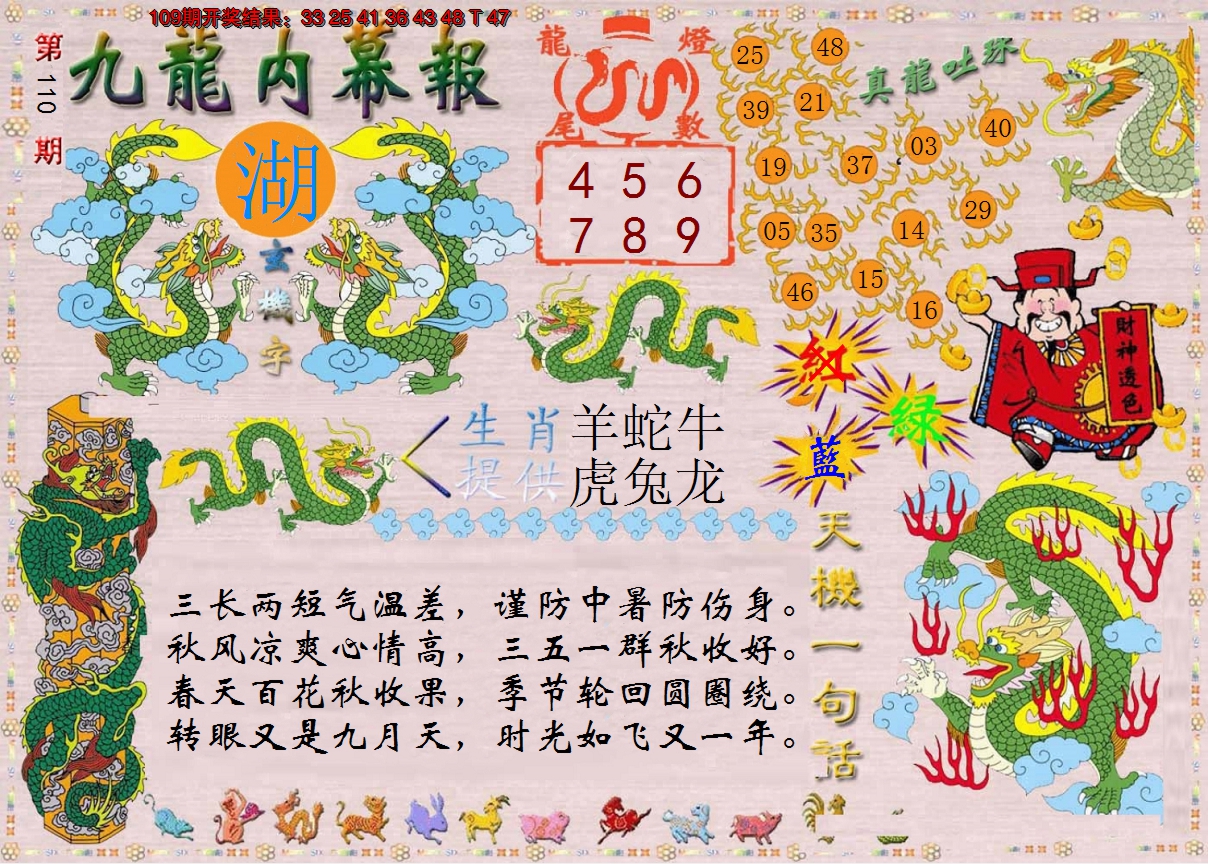 109期开奖结果：33 25 41 36 43 48 T 47
第110期
九龍内幕報
湖
玄機字
龍燈
尾數
4 5 6
7 8 9
真龍吐珠
25 48
39 21
03 40
19 37
05 35 14 29
46 15 16
財神透色
紅
綠
藍
生肖 羊蛇牛
提供 虎兔龙
天機一句話
三长两短气温差，谨防中暑防伤身。
秋风凉爽心情高，三五一群秋收好。
春天百花秋收果，季节轮回圆圈绕。
转眼又是九月天，时光如飞又一年。